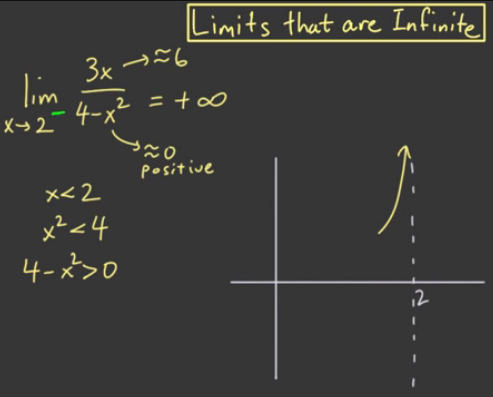 Limits that are Infinite
lim x→2⁻ 3x/(4-x²) = +∞
→≈6
→≈0
positive
x<2
x²<4
4-x²>0
2